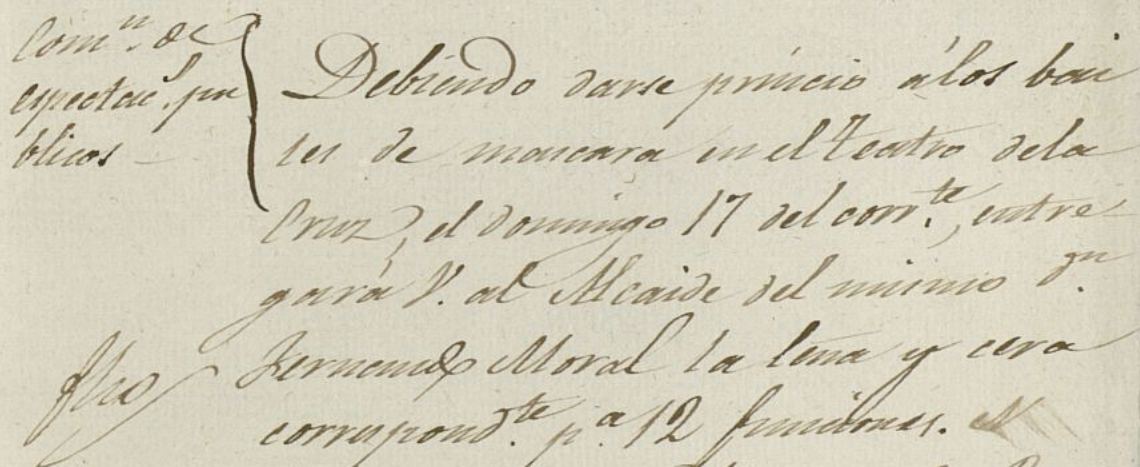 Com.ⁿ de
espectác.ˢ pu
blicos
Debiendo darse princio á los bai
les de mascara en el teatro de la
Cruz, el domingo 17 del corr.ᵗᵉ, entre
gará V. al Alcaide del mismo dⁿ.
Fernando Moral la leña y cera
correspond.ᵗᵉ p.ᵃ 12 funciones.
fho